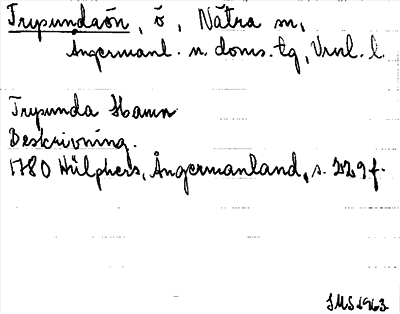 Trysundaön, ö, Nätra sn,
Ångermanl. n. doms. tg, Vnrl. l.
Trysunda Hamn
Beskrivning.
1780 Hülphers, Ångermanland, s. 229 f.
SMS 1963